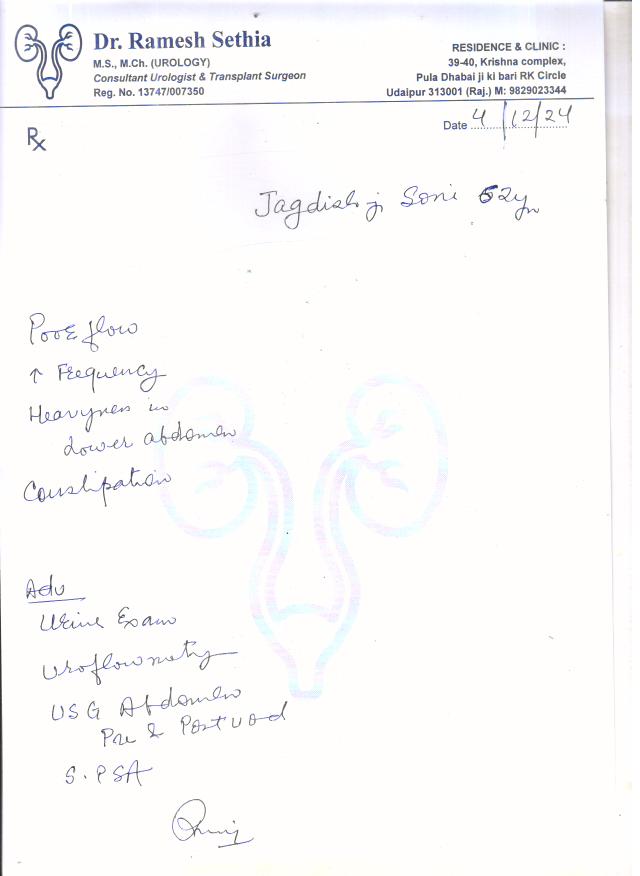 Dr. Ramesh Sethia
M.S., M.Ch. (UROLOGY)
Consultant Urologist & Transplant Surgeon
Reg. No. 13747/007350
RESIDENCE & CLINIC :
39-40, Krishna complex,
Pula Dhabai ji ki bari RK Circle
Udaipur 313001 (Raj.) M: 9829023344
Date 4/12/24
Rx
Jagdish ji Soni 62yr
Poor flow
↑ Frequency
Heavyness in
Lower abdomen
Constipation
Adv
Urine Exam
Uroflowmetry
USG Abdomen
Pre & Postvoid
S. PSA